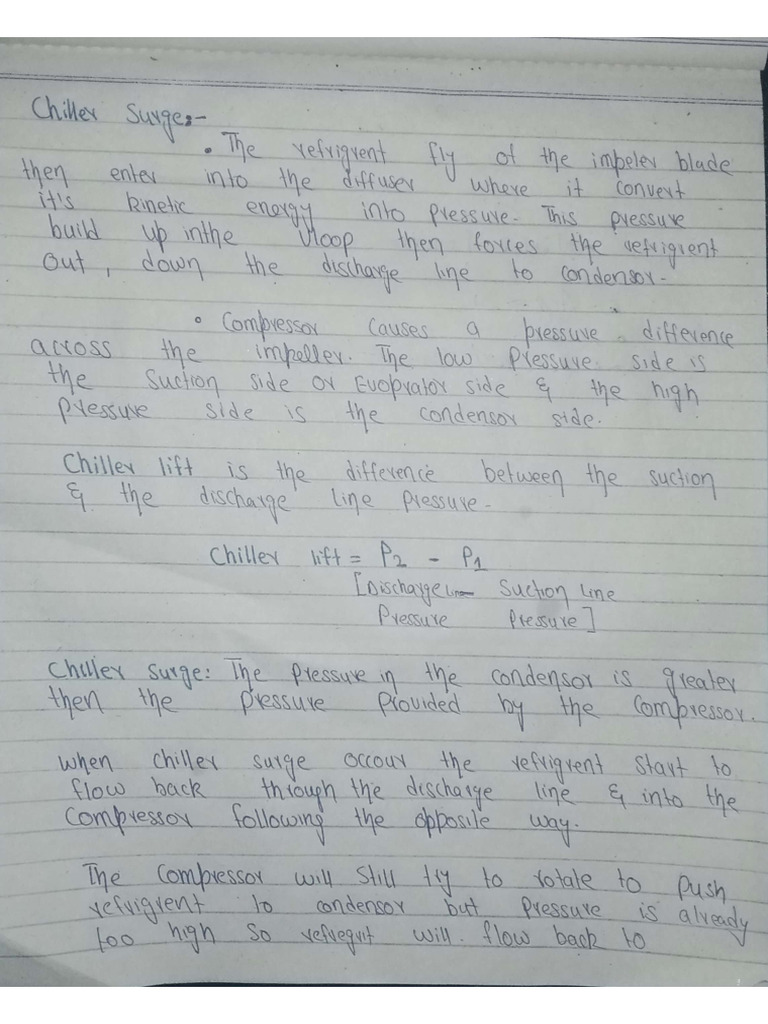 Chiller Surge:-
• The refrigrent fly of the impeler blade
then enter into the diffuser where it convert
it's kinetic energy into pressure. This pressure
build up inthe Vloop then forces the refrigrent
out, down the discharge line to condensor-
• Compressor causes a pressure difference
across the impeller. The low pressure side is
the suction side or Evoprator side & the high
pressure side is the condensor side.
Chiller lift is the difference between the suction
& the discharge line pressure-
Chiller lift = P2 - P1
[Discharge Line Suction Line
Pressure Pressure]
Chiller surge: The pressure in the condensor is greater
then the pressure provided by the compressor.
When chiller surge occour the refrigrent start to
flow back through the discharge line & into the
compressor following the opposite way.
The compressor will still try to rotale to push
refrigrent to condensor but pressure is already
too high so refregrit will. flow back to